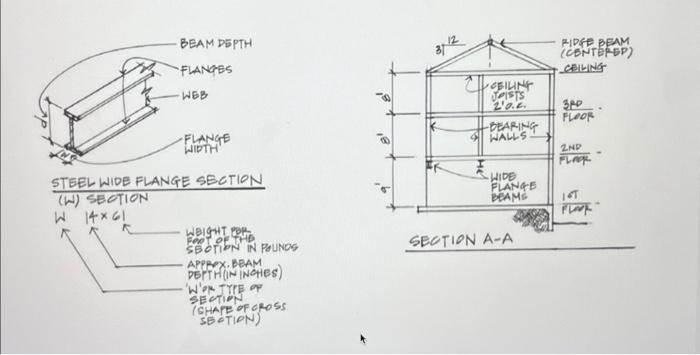 BEAM DEPTH
FLANGES
WEB
d
FLANGE
WIDTH
STEEL WIDE FLANGE SECTION
(W) SECTION
W 14 x 61
WEIGHT PER
FOOT OF THE
SECTION IN POUNDS
APPROX. BEAM
DEPTH (IN INCHES)
'W' OR TYPE OF
SECTION
(SHAPE OF CROSS
SECTION)
12
3
RIDGE BEAM
(CENTERED)
CEILING
CEILING
JOISTS
2' O.C.
8'
3RD
FLOOR
BEARING
WALLS
8'
2ND
FLOOR
WIDE
FLANGE
BEAMS
9'
1ST
FLOOR
SECTION A-A